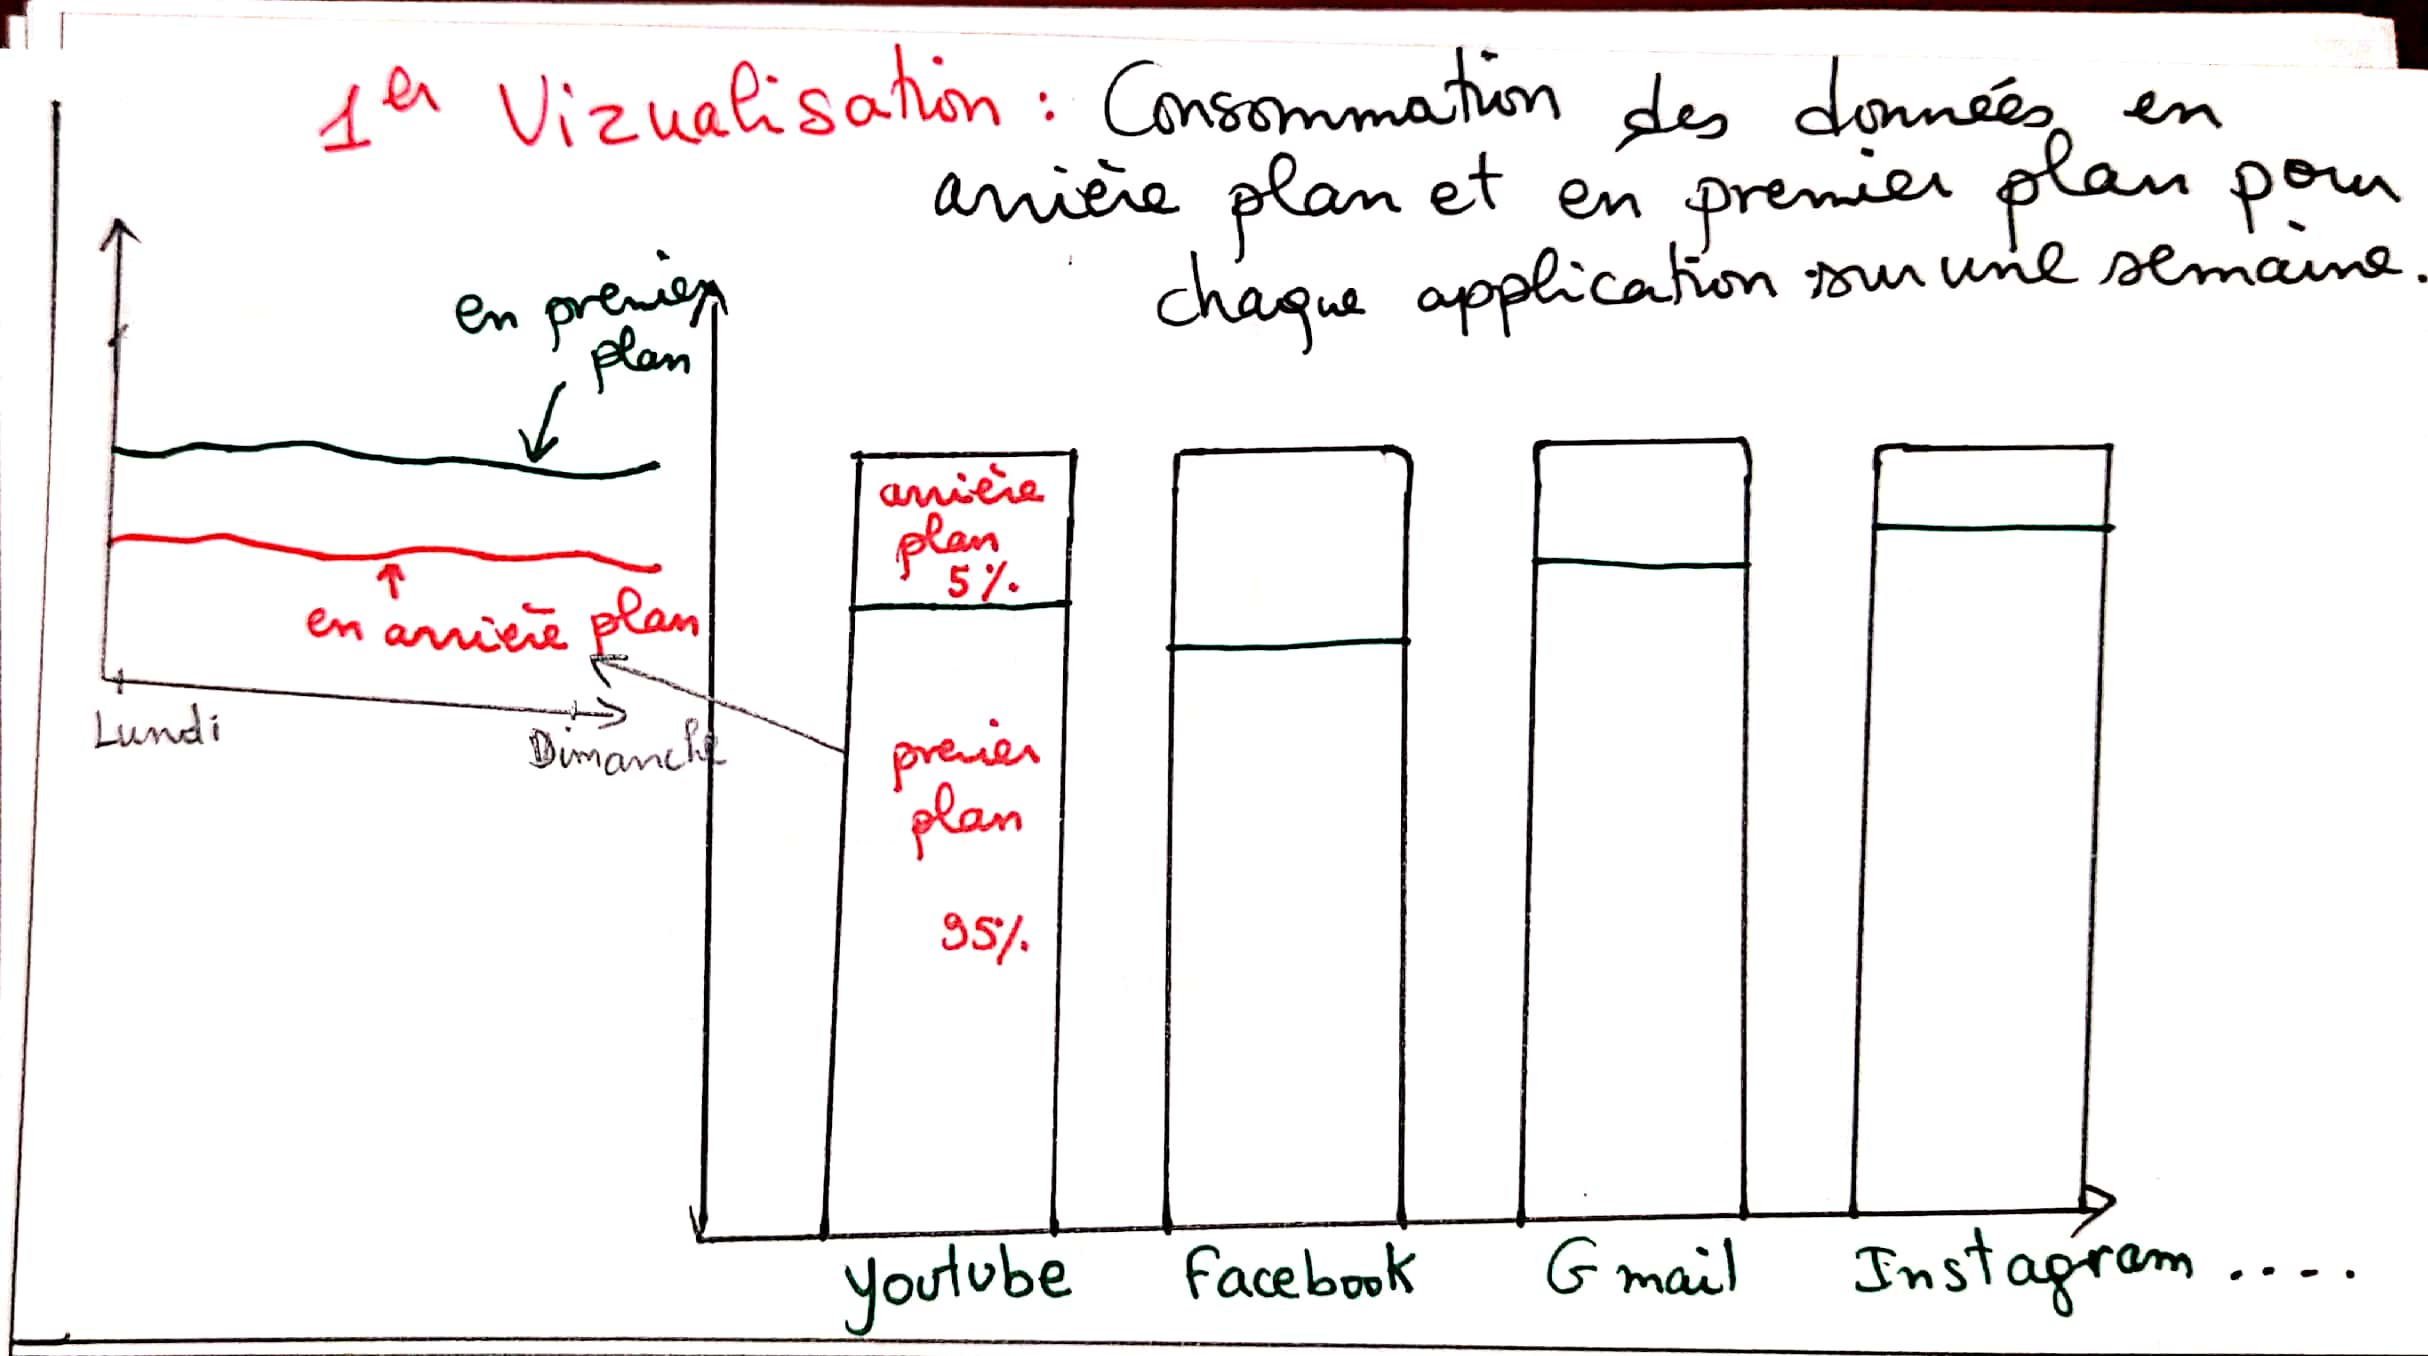 1er Vizualisation : Consommation des données en
arrière plan et en premier plan pour
chaque application sur une semaine.
en premier
plan
en arrière plan
Lundi
Dimanche
arrière
plan
5%
premier
plan
95%
youtube Facebook Gmail Instagram ....